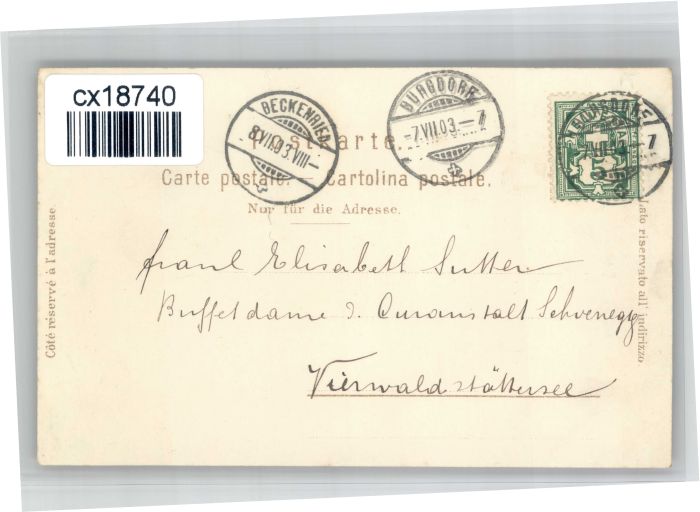 cx18740
BECKENRIED
8.VII.03.VIII—
BURGDORF
-7.VII.03.—7
BURGDORF
7
5
Postkarte.
Carte postale. — Cartolina postale.
Nur für die Adresse.
Côté réservé à l'adresse.
Lato riservato all' indirizzo
Elisabeth Sutter
Buffetdame d. Curanstalt Schönegg
Vierwaldstättersee